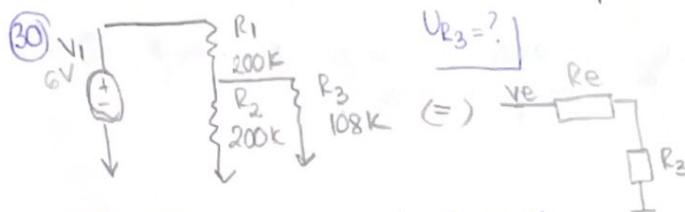 30
V1
6V
+
-
R1
200K
R2
200K
R3
108K
UR3=?
(=)
Ve
Re
R3